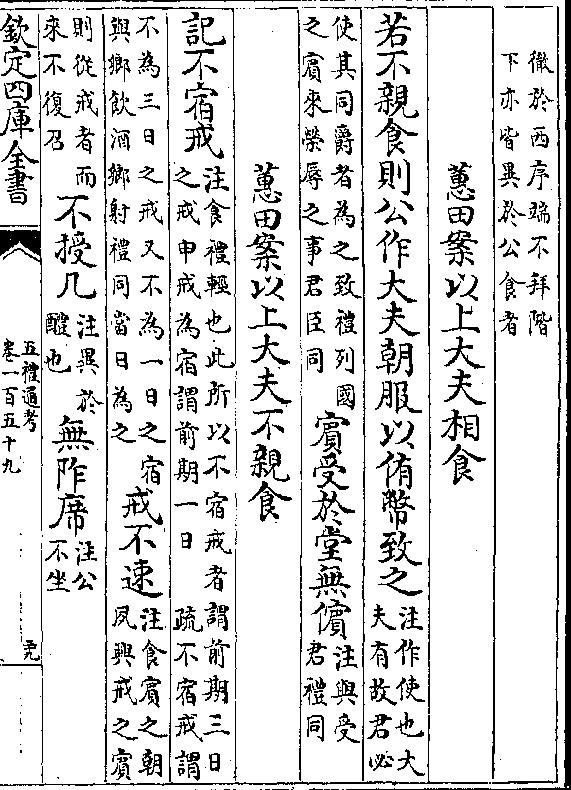 徹於西序端不拜階
下亦皆異於公食者
蕙田案以上大夫相食
若不親食則公作大夫朝服以侑幣致之注作使也大
夫有故君必
使其同爵者為之致禮列國
之賓來榮辱之事君臣同
賓受於堂無儐注與受
君禮同
蕙田案以上大夫不親食
記不宿戒注食禮輕也此所以不宿戒者謂前期三日
之戒申戒為宿謂前期一日 疏不宿戒謂
不為三日之戒又不為一日之宿
與鄉飲酒鄉射禮同當日為之
戒不速注食賓之朝
夙興戒之賓
則從戒者而
來不復召
不授几注異於
醴也
無阼席注公
不坐
欽定四庫全書
五禮通考
卷一百五十九